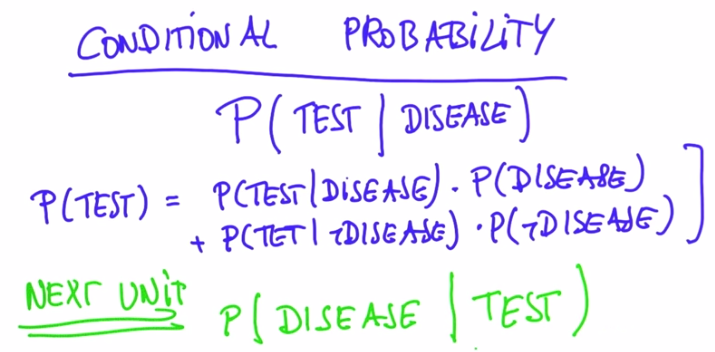 CONDITIONAL PROBABILITY
P(TEST | DISEASE)
P(TEST) = P(TEST|DISEASE) · P(DISEASE)
+ P(TET|¬DISEASE) · P(¬DISEASE) ]
NEXT UNIT P(DISEASE | TEST)